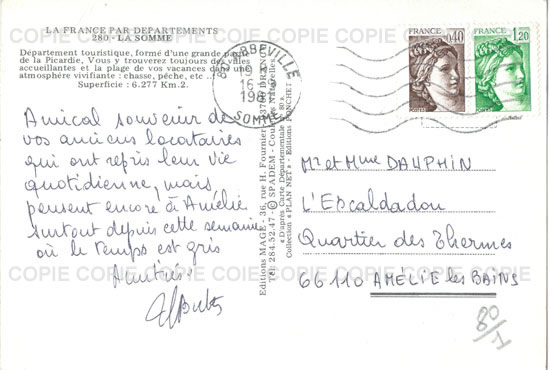 LA FRANCE PAR DEPARTEMENTS
280 - LA SOMME
Département touristique, formé d'une grande partie
de la Picardie, Vous y trouverez toujours des villes
accueillantes et la plage de vos vacances dans une
atmosphère vivifiante : chasse, pêche, etc ...
Superficie : 6.277 Km.2.
Amical souvenir de
vos anciens locataires
qui ont repris leur vie
quotidienne, mais
pensent encore à Amélie
surtout depuis cette semaine
où le temps est gris
Editions MAGE - 36, rue H. Fournier
Tél: 284.52.47 - © SPADEM - Couleurs Naturelles
« D'après Carte Départementale
Collection « PLAN NET » - Editions PONCHET
80 ABBEVILLE
16 H
SOMME
0,40
1,20
Mr et Mme DAUPHIN
L'Escaldadou
Quartier des Thermes
66110 AMÉLIE les BAINS
80/1
COPIE COPIE COPIE COPIE COPIE COPIE
COPIE COPIE COPIE COPIE COPIE COPIE